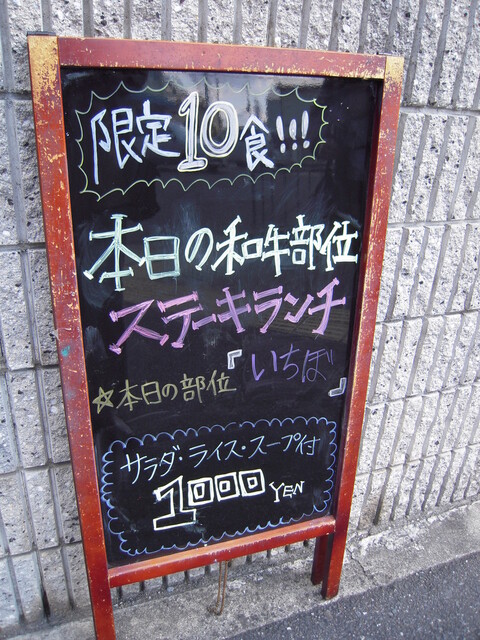 限定10食!!!
本日の和牛部位
ステーキランチ
☆本日の部位『いちぼ』
サラダ・ライス・スープ付
1000 YEN